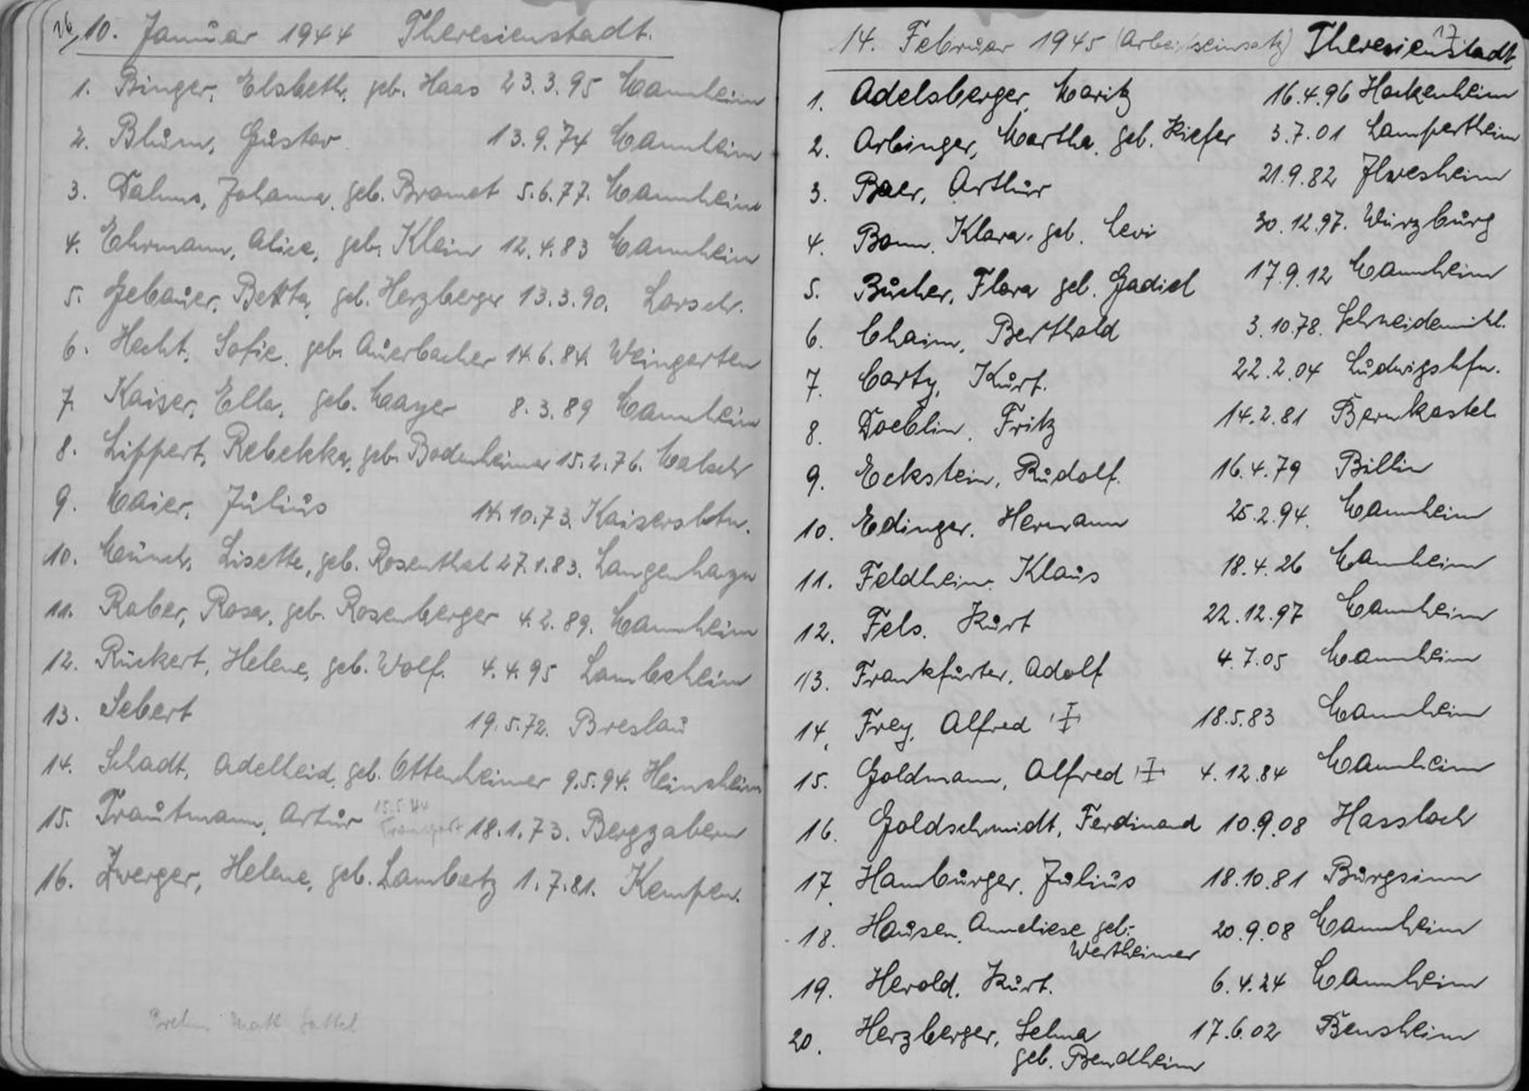 26/10. Januar 1944 Theresienstadt.
1. Binger, Elsbeth, geb. Haas 23.3.95 Mannheim
2. Blum, Gustav 13.9.74 Mannheim
3. Dahms, Johanna, geb. Bramet 5.6.77. Mannheim
4. Ehrmann, Alice, geb. Klein 12.4.83 Mannheim
5. Gebauer, Betta, geb. Herzberger 13.3.90. Lorsch.
6. Hecht, Sofie, geb. Auerbacher 14.6.84. Weingarten
7. Kaiser, Ella, geb. Mayer 8.3.89 Mannheim
8. Lippert, Rebekka, geb. Bodenheimer 15.2.76. Malsch
9. Maier, Julius 14.10.73. Kaisersltn.
10. Münch, Lisette, geb. Rosenthal 27.1.83. Langenhagn
11. Raber, Rosa, geb. Rosenberger 4.2.89. Mannheim
12. Rückert, Helene, geb. Wolf. 4.4.95 Lambsheim
13. Sebert 19.5.72. Breslau
14. Schadt, Adelheid, geb. Ottenheimer 9.5.94. Heinsheim
15.5.44
15. Trautmann, Artur Transport 18.1.73. Bergzabern
16. Zwerger, Helene, geb. Lambertz 1.7.81. Kempen.
17
14. Februar 1945 (Arbeitseinsatz) Theresienstadt
1. Adelsberger, Moritz 16.4.96 Hackenheim
2. Arbinger, Martha, geb. Kiefer 3.7.01 Lampertheim
3. Baer, Arthur 21.9.82 Ilvesheim
4. Bonn, Klara, geb. Levi 30.12.97. Würzburg
5. Bucher, Flora geb. Gadiel 17.9.12 Mannheim
6. Chaim, Berthold 3.10.78. Schneidemhl.
7. Carty, Kurt. 22.2.04 Ludwigshfn.
8. Doeblin, Fritz 14.2.81 Bernkastel
9. Eckstein, Rudolf. 16.4.79 Billin
10. Edinger, Hermann 25.2.94. Mannheim
11. Feldheim Klaus 18.4.26 Mannheim
12. Fels, Kurt 22.12.97 Mannheim
13. Frankfurter, Adolf 4.7.05 Mannheim
14. Frey, Alfred I 18.5.83 Mannheim
15. Goldmann, Alfred I 4.12.84 Mannheim
16. Goldschmidt, Ferdinand 10.9.08 Hassloch
17. Hamburger, Julius 18.10.81 Burgsinn
18. Hausen, Anneliese geb. 20.9.08 Mannheim
Wertheimer
19. Herold, Kurt. 6.4.24 Mannheim
20. Herzberger, Selma 17.6.02 Bensheim
geb. Bendheim